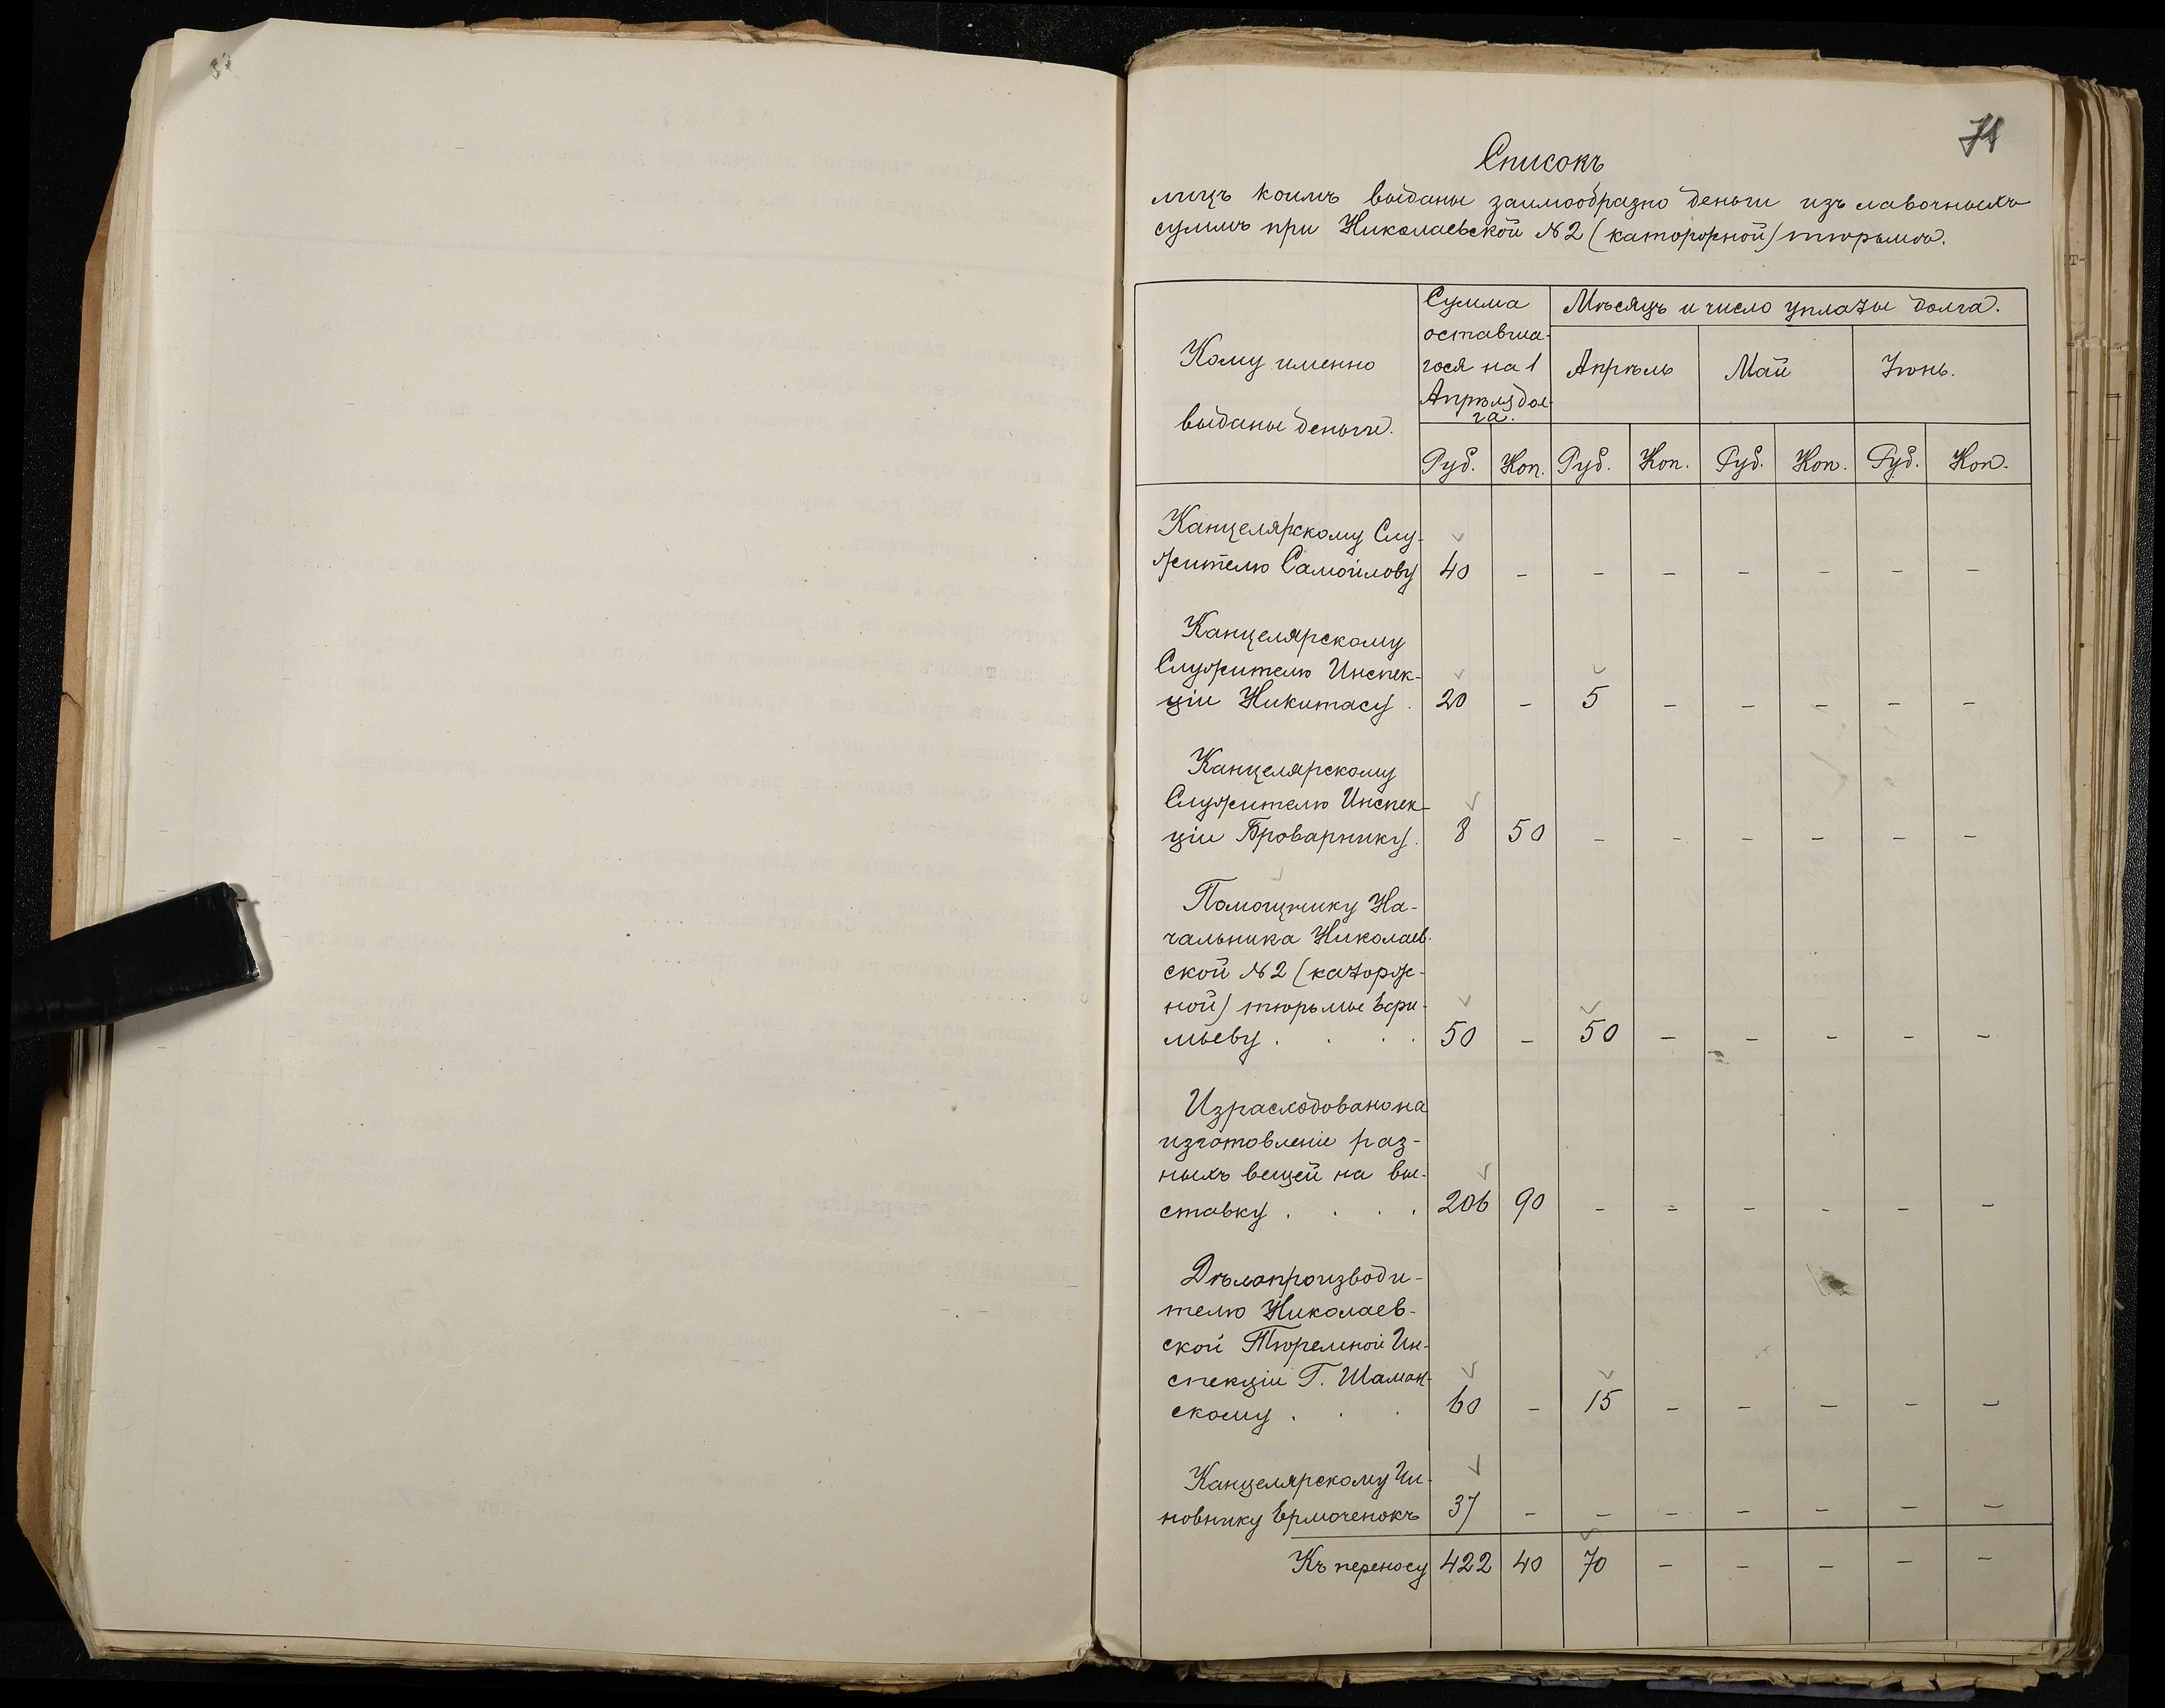 71
Списокъ
лицъ коимъ выданы заимообразно деньги изъ лавочныхъ
суммъ при Николаевской №2 (каторжной) тюрьмѣ.
Кому именно
выданы деньги.
Сумма
оставша-
гося на 1
Апрѣля дол-
га.
Мѣсяцъ и число уплаты долга.
Апрѣль Май Іюнь.
Руб. Коп. Руб. Коп. Руб. Коп. Руб. Коп.
Канцелярскому Слу-
жителю Самойлову 40 - - - - - - -
Канцелярскому
Служителю Инспек-
ціи Никитасу . 20 - 5 - - - - -
Канцелярскому
Служителю Инспек-
ціи Броварнику . 8 50 - - - - - -
Помощнику На-
чальника Николаев-
ской №2 (каторж-
ной) тюрьмы Ери-
мѣеву . . . . 50 - 50 - - - - -
Израсходовано на
изготовленіе раз-
ныхъ вещей на вы-
ставку . . . . 206 90 - - - - - -
Дѣлопроизводи-
телю Николаев-
ской Тюремной Ин-
спекціи Г. Шаман-
скому . . . 60 - 15 - - - - -
Канцелярскому Чи-
новнику Ермоченокъ 37 - - - - - - -
Къ переносу 422 40 70 - - - - -